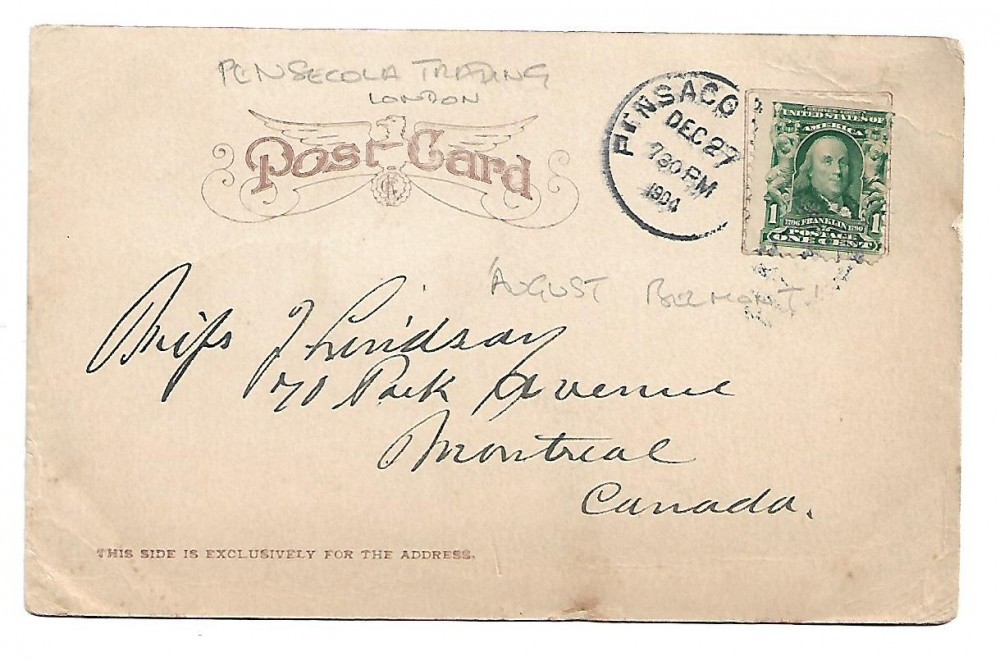 PENSECOLA TRADING
LONDON
Post Card
PENSACO
DEC 27
7 30 PM
1904
SERIES 1902
UNITED STATES OF
AMERICA
1 1
1706 FRANKLIN 1790
POSTAGE
ONE CENT
'AUGUST BELMONT'
Miss J Lindsay
70 Park Avenue
Montreal
Canada.
THIS SIDE IS EXCLUSIVELY FOR THE ADDRESS.